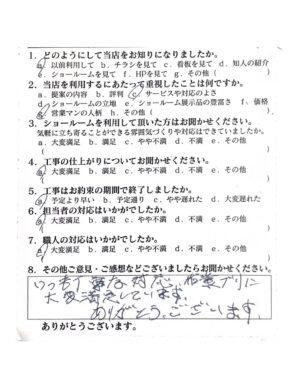 1. どのようにして当店をお知りになりましたか。
a. 以前利用して b. チラシを見て c. 看板を見て d. 知人の紹介
e. ショールームを見て f. HPを見て g. その他（ ）
2. 当店を利用するにあたって重視したことは何ですか。
a. 提案の内容 b. 評判 c. サービスや対応のよさ
d. ショールームの立地 e. ショールーム展示品の豊富さ f. 価格
g. 営業マンの人柄 h. その他（ ）
3. ショールームを利用して頂いた方はお聞かせください。
気軽に立ち寄ることができる雰囲気づくりや対応はできていましたか。
a. 大変満足 b. 満足 c. やや不満 d. 不満 e. その他
（ ）
4. 工事の仕上がりについてお聞かせください。
a. 大変満足 b. 満足 c. やや不満 d. 不満 e. その他
（ ）
5. 工事はお約束の期間で終了しましたか。
a. 予定より早い b. 予定通り c. やや遅れた d. 大変遅れた
6. 担当者の対応はいかがでしたか。
a. 大変満足 b. 満足 c. やや不満 d. 不満 e. その他
（ ）
7. 職人の対応はいかがでしたか。
a. 大変満足 b. 満足 c. やや不満 d. 不満 e. その他
（ ）
8. その他ご意見・ご感想などございましたらお聞かせください。
いつも丁寧な対応、作業ブリに
大変満足しています。
ありがとうございます。
ありがとうございます。